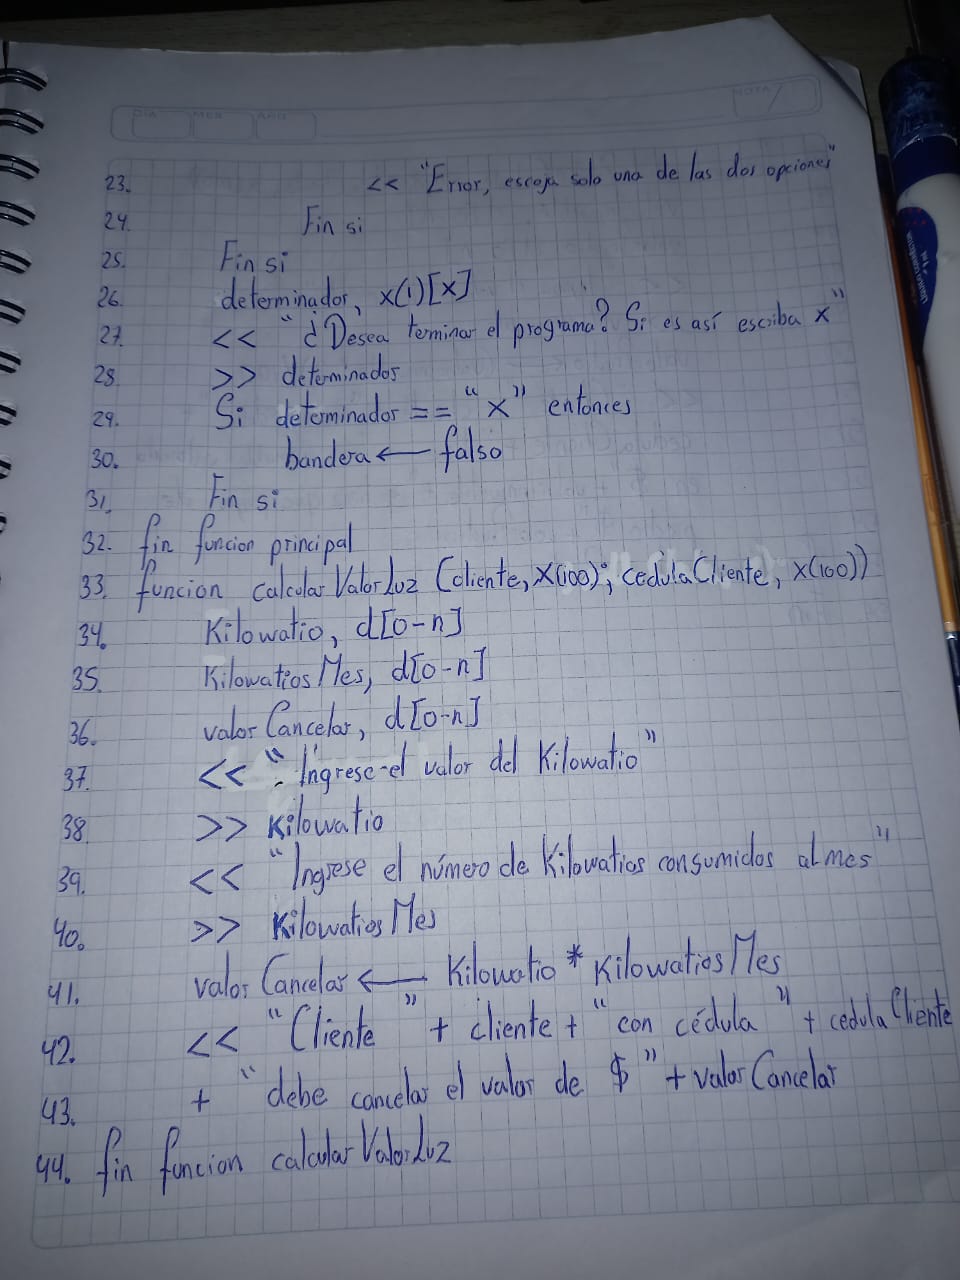 DIA MES AÑO NOTA
23. << "Error, escoja solo una de las dos opciones"
24. Fin si
25. Fin si
26. determinador, x(1)[x]
27. << "¿Desea terminar el programa? Si es así escriba x"
28. >> determinados
29. Si determinador == "x" entonces
30. bandera ← falso
31. Fin si
32. fin funcion principal
33. funcion calcularValorLuz (cliente, X(100); cedulaCliente, X(100))
34. Kilowatio, d[0-n]
35. KilowatiosMes, d[0-n]
36. valorCancelar, d[0-n]
37. << "Ingrese el valor del Kilowatio"
38. >> Kilowatio
39. << "Ingrese el número de Kilowatios consumidos al mes"
40. >> KilowatiosMes
41. valorCancelar ← Kilowatio * KilowatiosMes
42. << "Cliente" + cliente + "con cédula" + cedulaCliente
43. + "debe cancelar el valor de $" + valorCancelar
44. fin funcion calcularValorLuz